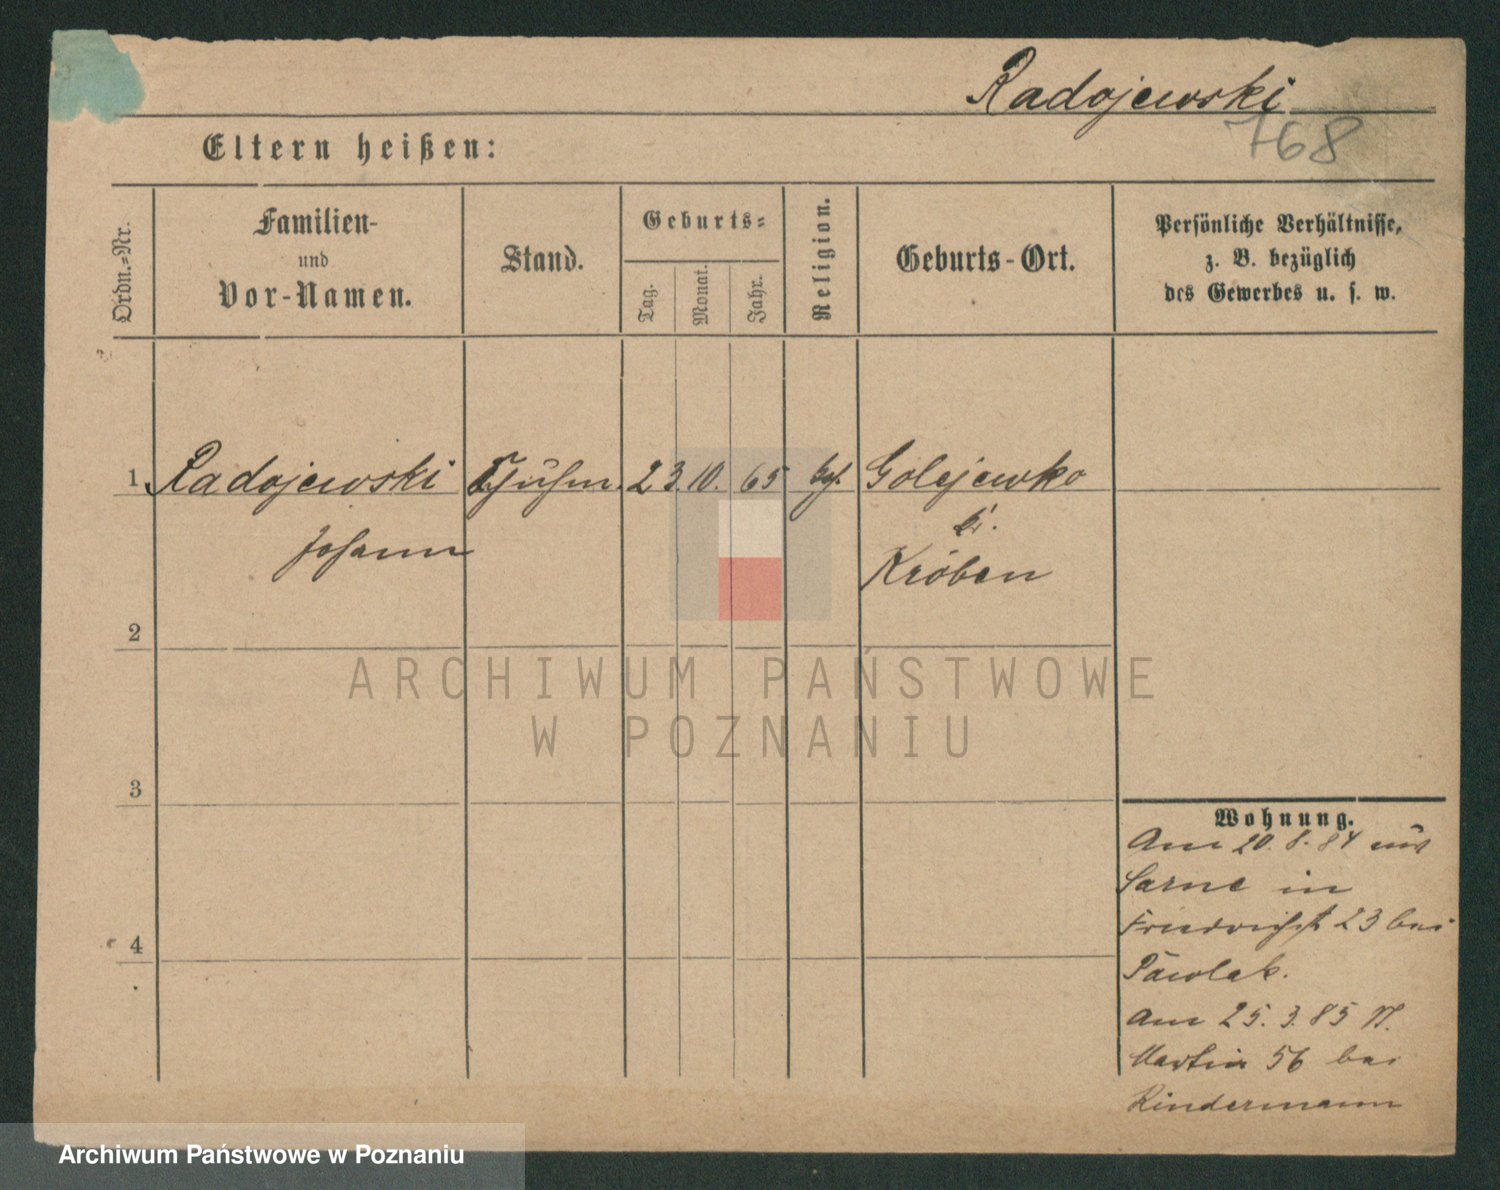 Radojewski
768
Eltern heißen:
Ordn.-Nr.
Familien-
und
Vor-Namen.
Stand.
Geburts-
Tag.
Monat.
Jahr.
Religion.
Geburts-Ort.
Persönliche Verhältnisse,
z. B. bezüglich
des Gewerbes u. s. w.
1 Radojewski 23. 10. 65 Golejewko
Johann
Kr.
Kröben
2
3
4
Wohnung.
Am 20. 8. 84 aus
Sarne in
Friedrichst 23 bei
Pawlak.
Am 25. 3. 85 St.
Martin 56 bei
Rindermann
ARCHIWUM PAŃSTWOWE
W POZNANIU
Archiwum Państwowe w Poznaniu